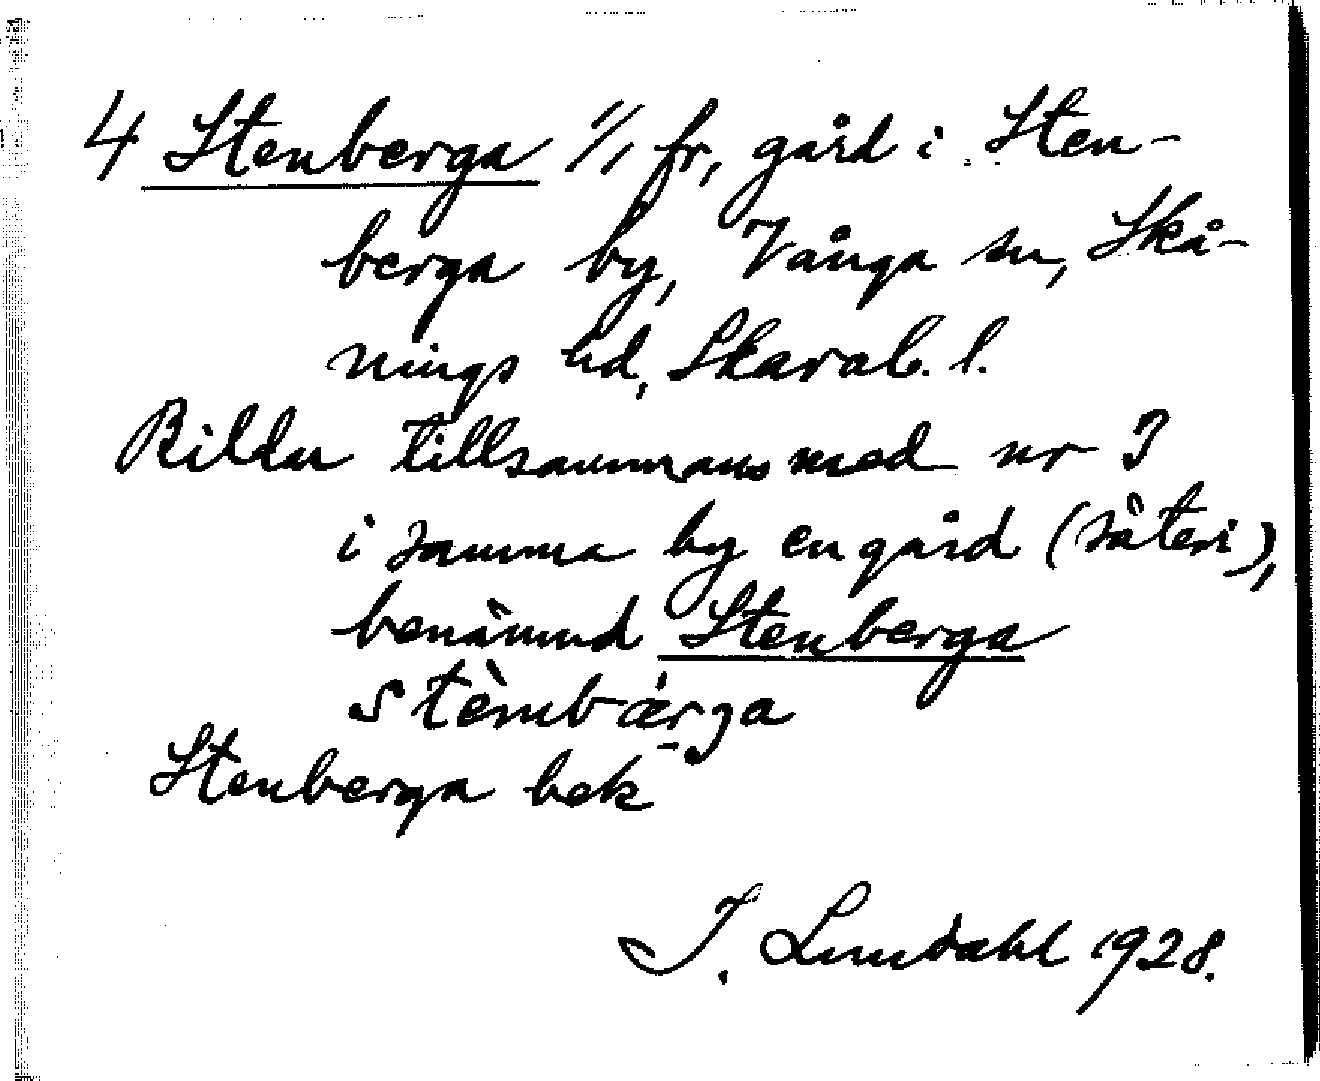 4 Stenberga 1/1 fr, gård i Sten-
berga by, Vånga sn, Skå-
nings hd, Skarab. l.
Bildar tillsammans med nr 3
i samma by en gård (säteri),
benämnd Stenberga
stèmbǽrga
Stenberga bek
J. Lundahl 1928.